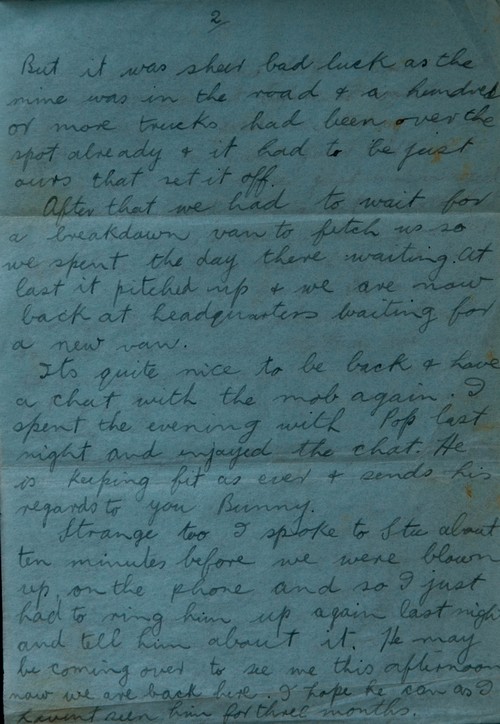 2
But it was sheer bad luck as the
mine was in the road & a hundred
or more trucks had been over the
spot already & it had to be just
ours that set it off.
After that we had to wait for
a breakdown van to fetch us so
we spent the day there waiting. At
last it pitched up & we are now
back at headquarters waiting for
a new van.
Its quite nice to be back & have
a chat with the mob again. I
spent the evening with Pop last
night and enjoyed the chat. He
is keeping fit as ever & sends his
regards to you Bunny.
Strange too I spoke to Stu about
ten minutes before we were blown
up, on the phone and so I just
had to ring him up again last night
and tell him about it. He may
be coming over to see me this afternoon
now we are back here. I hope he can as I
havent seen him for three months.